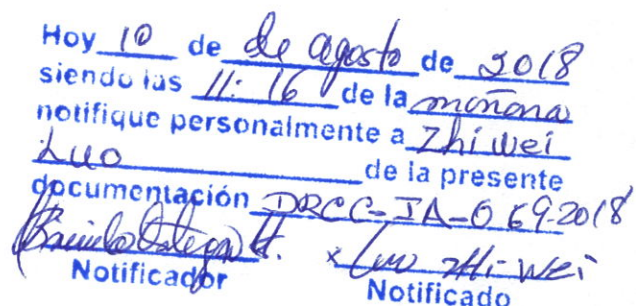 Hoy 10 de de agosto de 2018
siendo las 11:16 de la mañana
notifique personalmente a Zhi wei
Luo de la presente
documentación DRCC-IA-069-2018
x Luo Zhi-Wei
Notificador Notificado